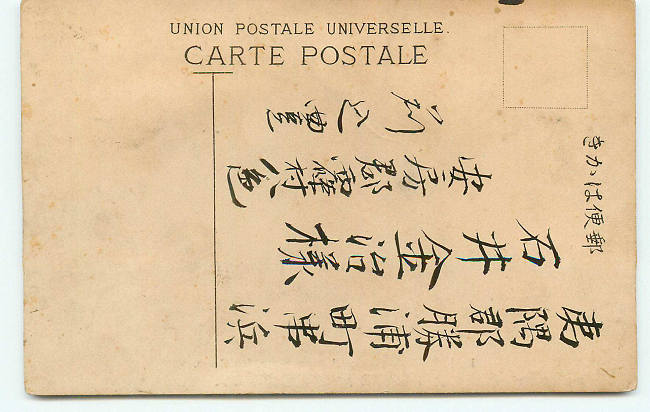 UNION POSTALE UNIVERSELLE.
CARTE POSTALE
郵便はかき
夷隅郡勝浦町串浜
石井金治様
安房郡 村